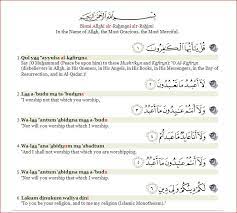 بسم الله الرحمن الرحيم
Bismi Allahi ar-Rahmani ar-Rahimi
In the Name of Allah, the Most Gracious, the Most Merciful.
قُلْ يَٰٓأَيُّهَا ٱلْكَٰفِرُونَ
Qul yaa 'ayyuha al-kafiruna
Say (O Muhammad (Peace be upon him) to these Mushrikun and Kafirun): "O Al-Kafirun
(disbelievers in Allah, in His Oneness, in His Angels, in His Books, in His Messengers, in the Day of
Resurrection, and in Al-Qadar)!
لَآ أَعْبُدُ مَا تَعْبُدُونَ
Laa a-'budu ma ta-'buduna
"I worship not that which you worship,
وَلَآ أَنتُمْ عَٰبِدُونَ مَآ أَعْبُدُ
Waa laa 'antum 'abiduna maa a-'budu
"Nor will you worship that which I worship.
وَلَآ أَنَا۠ عَابِدٌ مَّا عَبَدتُّمْ
"And I shall not worship that which you are worshipping.
وَلَآ أَنتُمْ عَٰبِدُونَ مَآ أَعْبُدُ
Waa laa 'antum 'abiduna maa a-'budu
"Nor will you worship that which I worship.
لَكُمْ دِينُكُمْ وَلِىَ دِينِ
Lakum dinukum waliya dini
"To you be your religion, and to me my religion (Islamic Monotheism)."